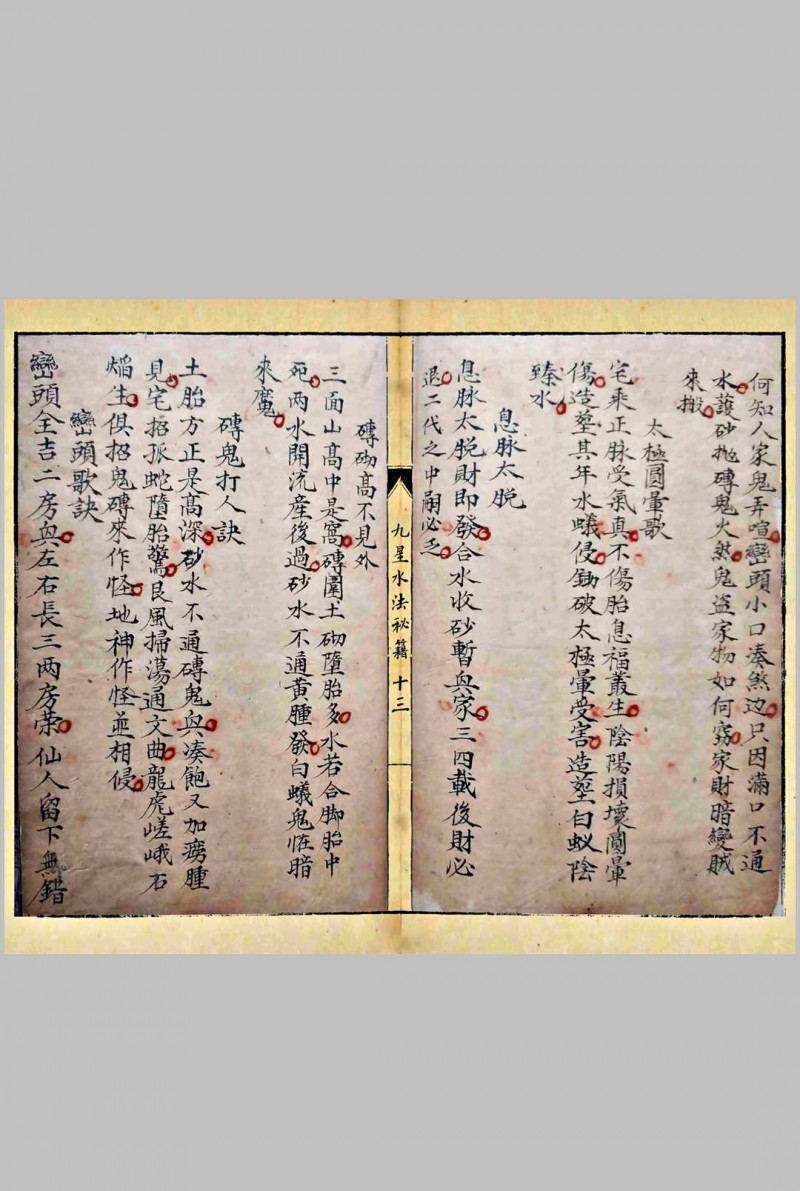 何知人家鬼弄喧巒頭小口凑煞边只因滿口不通
水護砂抛磚鬼火煞鬼盗家物如何窮家財暗變賊
來搬
太極圓暈歌
宅乘正脉受氣真不傷胎息福叢生陰陽損壞圓暈
傷造塋其年水蟻侵鋤破太極暈受害造塋白蚁陰
臻水
息脉太脱
息脉太脱財即發合水收砂暫與家三四載後財必
退二代之中嗣必乏
九星水法祕籍 十三
磚砌高不見外
三面山高中是窩磚圍土砌墮胎多水若合脚胎中
死两水開流産後過砂水不通黄腫發白蟻鬼恠暗
來魔
磚鬼打人訣
土胎方正是高深砂水不通磚鬼與凑飽又加痨腫
見宅招孤蛇墮胎驚艮風掃蕩通文曲龍虎嵯峨石
生俱招鬼磚來作怪地神作怪並相侵
巒頭歌訣
巒頭全吉二房與左右長三两房荣仙人留下無錯